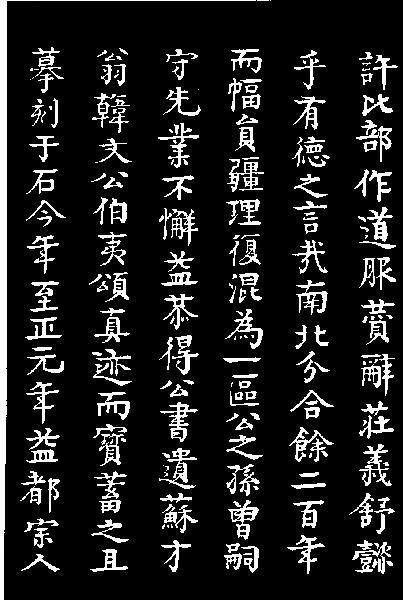 許比部作道服賛辭莊義舒懿
乎有德之言哉南北分合餘二百年
而幅員疆理復混為一區公之孫曾嗣
守先業不懈益恭得公書遺蘇才
翁韓文公伯夷頌真迹而寶蓄之且
摹刻于石今年至正元年益都宗人